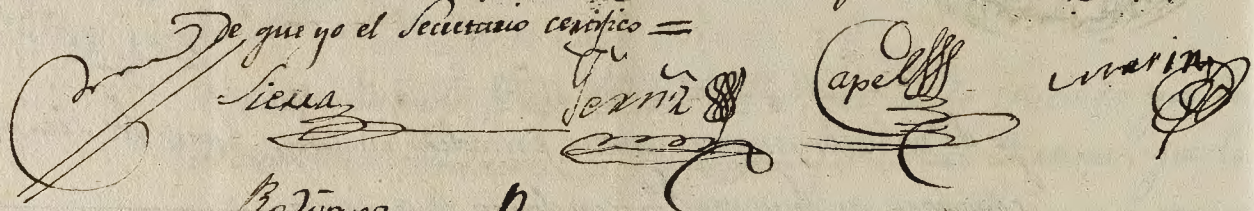 De que yo el Secretario certifico =
Sierra Ferñz Capel Marin